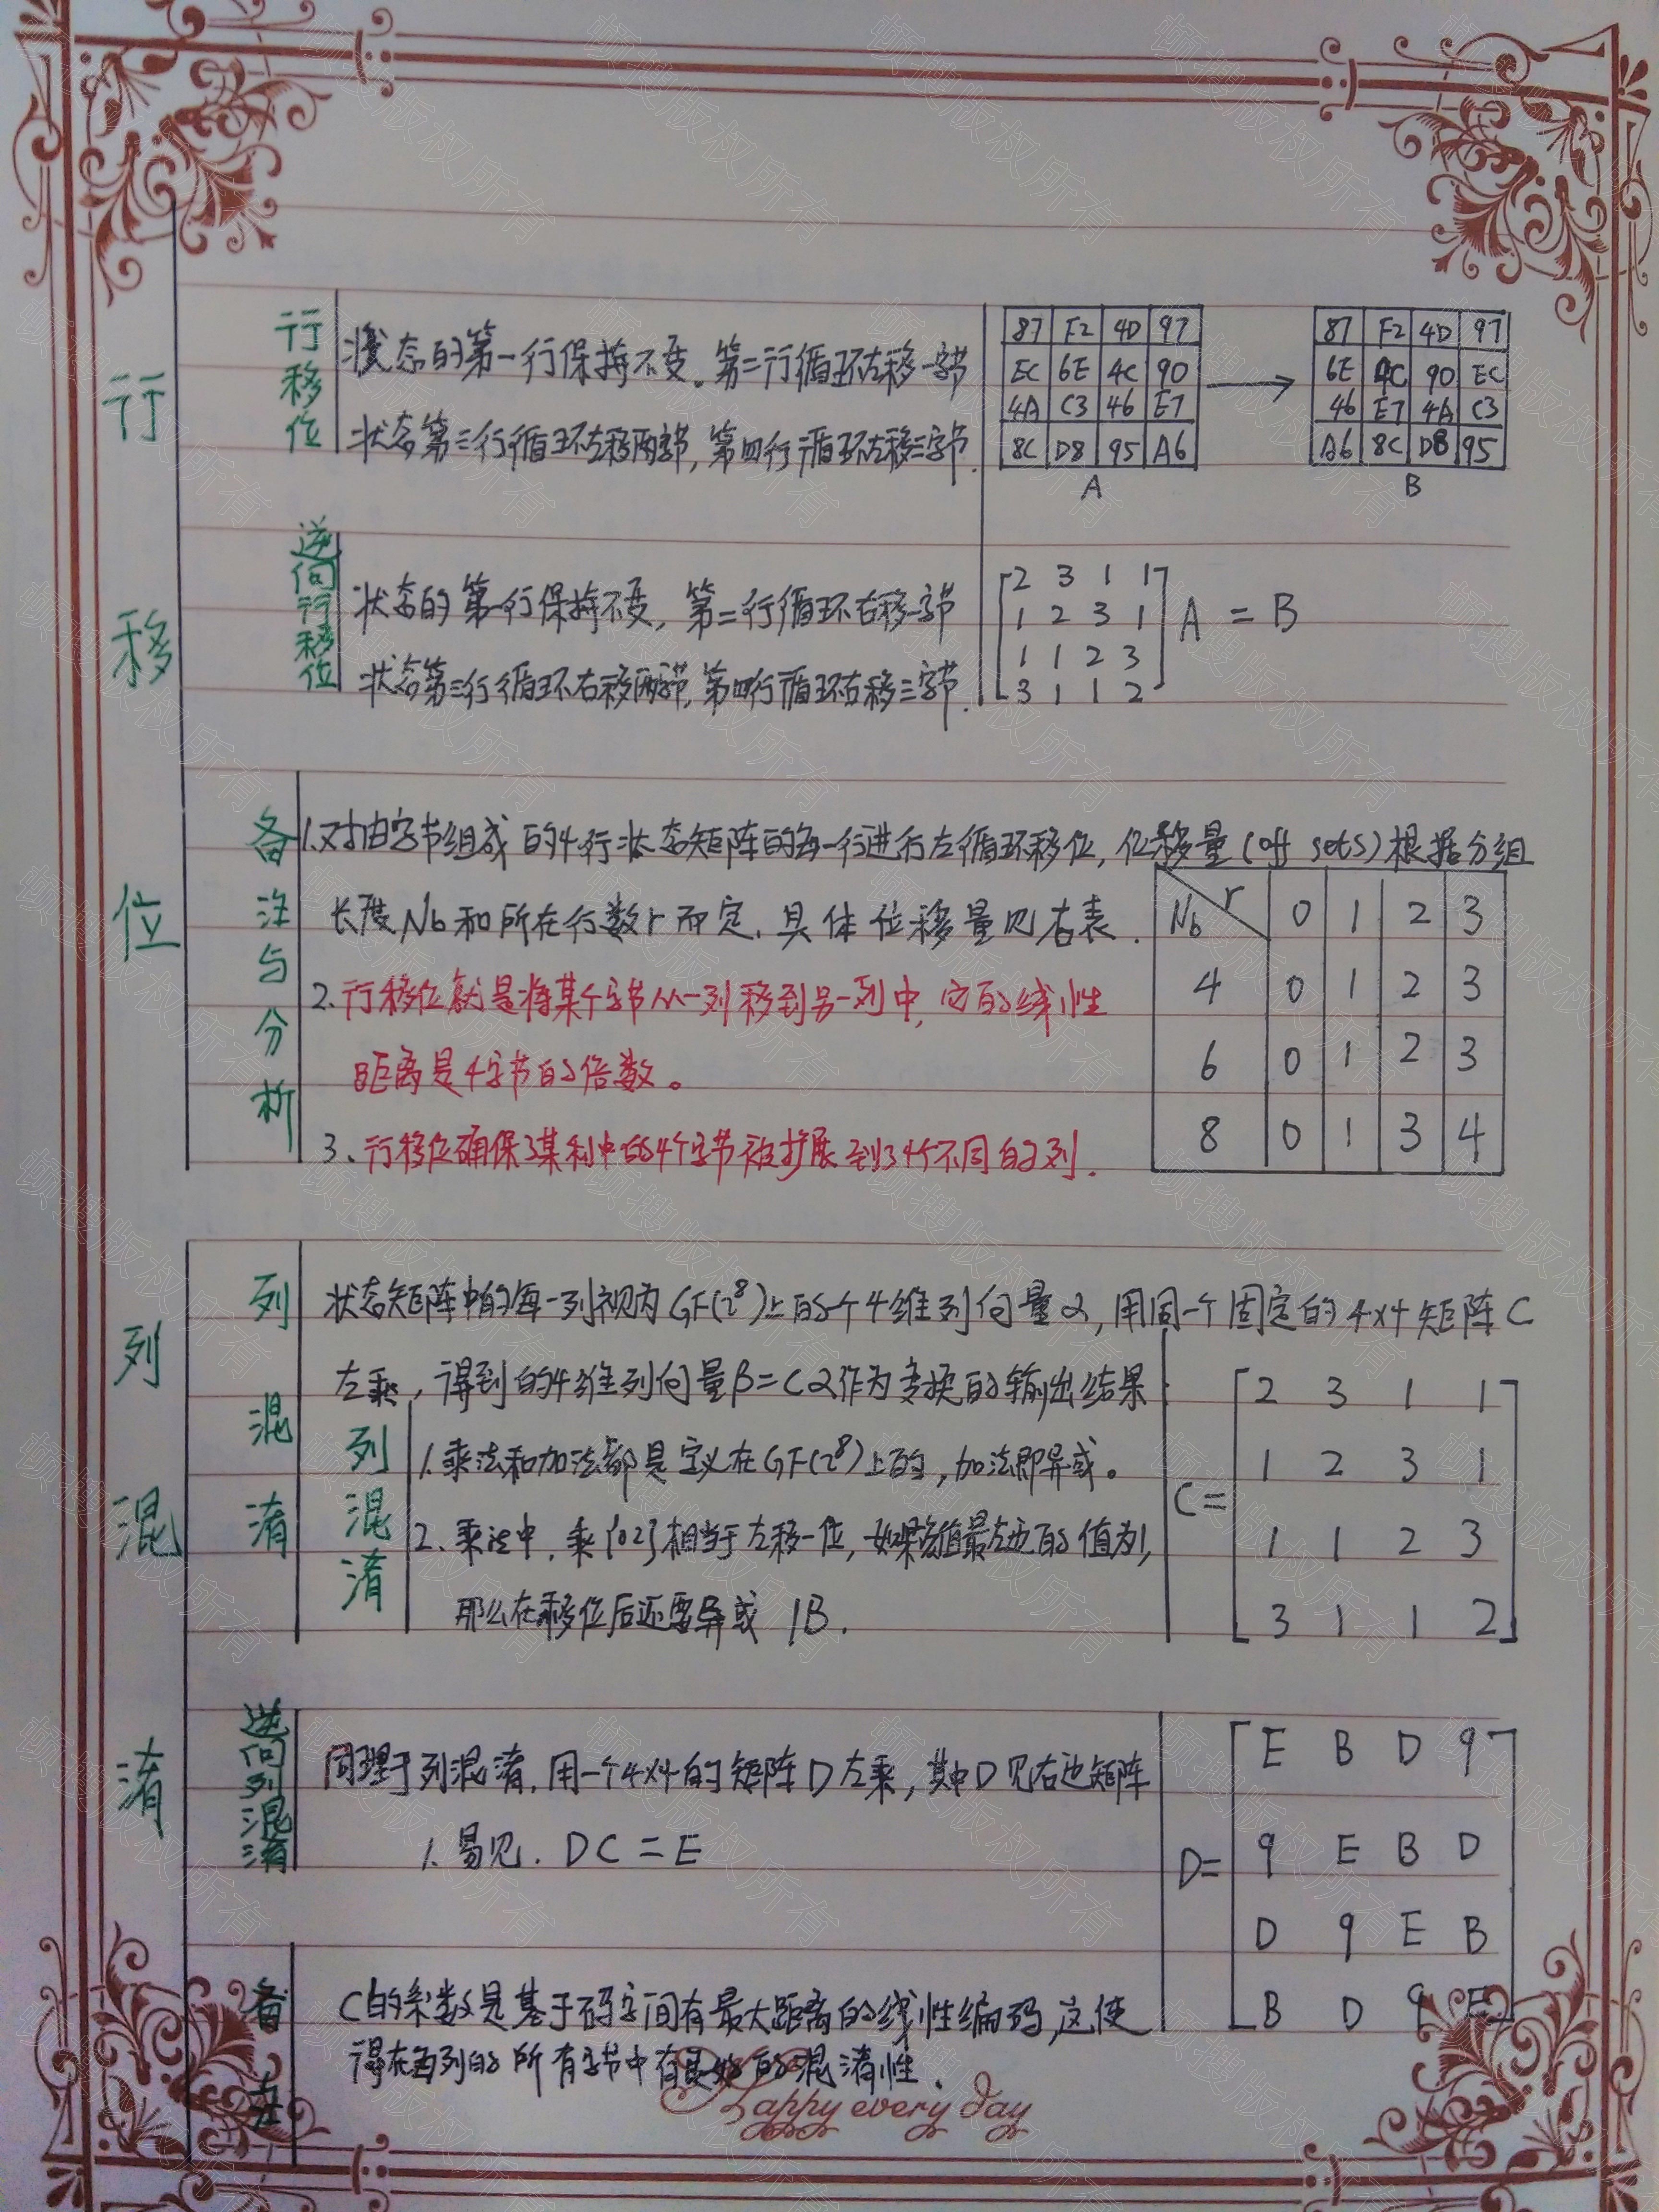 行移位
行移位
状态的第一行保持不变。第二行循环左移一字节
状态第三行循环左移两字节,第四行循环左移三字节.
87 F2 4D 97
EC 6E 4C 90
4A C3 46 E7
8C D8 95 A6
A
87 F2 4D 97
6E 4C 90 EC
46 E7 4A C3
A6 8C D8 95
B
逆向行移位
状态的第一行保持不变,第二行循环右移一字节
状态第三行循环右移两字节,第四行循环右移三字节.
2 3 1 1
1 2 3 1
1 1 2 3
3 1 1 2
A = B
备注与分析
1.对由字节组成的4行状态矩阵的每一行进行左循环移位,位移量(off sets)根据分组
长度Nb和所在行数r而定.具体位移量见右表.
2.行移位就是将某个字节从一列移到另一列中,它的线性
距离是4字节的倍数。
3、行移位确保了某列中的4个字节被扩展到了4个不同的列.
Nb r 0 1 2 3
4 0 1 2 3
6 0 1 2 3
8 0 1 3 4
列混淆
列混淆
状态矩阵中的每一列视为GF(2⁸)上的个4维列向量α,用同一个固定的4×4矩阵C
左乘,得到的4维列向量β=Cα作为变换的输出结果
列混淆
1.乘法和加法都是定义在GF(2⁸)上的,加法即异或。
2.乘法中,乘{02}相当于左移一位,如果该值最左边的值为1,
那么在移位后还要异或 1B.
C=
2 3 1 1
1 2 3 1
1 1 2 3
3 1 1 2
逆向列混淆
同理于列混淆.用一个4×4的矩阵D左乘,其中D见右边矩阵
1.易见.DC=E
D=
E B D 9
9 E B D
D 9 E B
B D 9 E
备注
C的系数是基于码字间有最大距离的线性编码,这使
得在每列的所有字节中有良好的混淆性.
Happy every day
顿搜版权所有